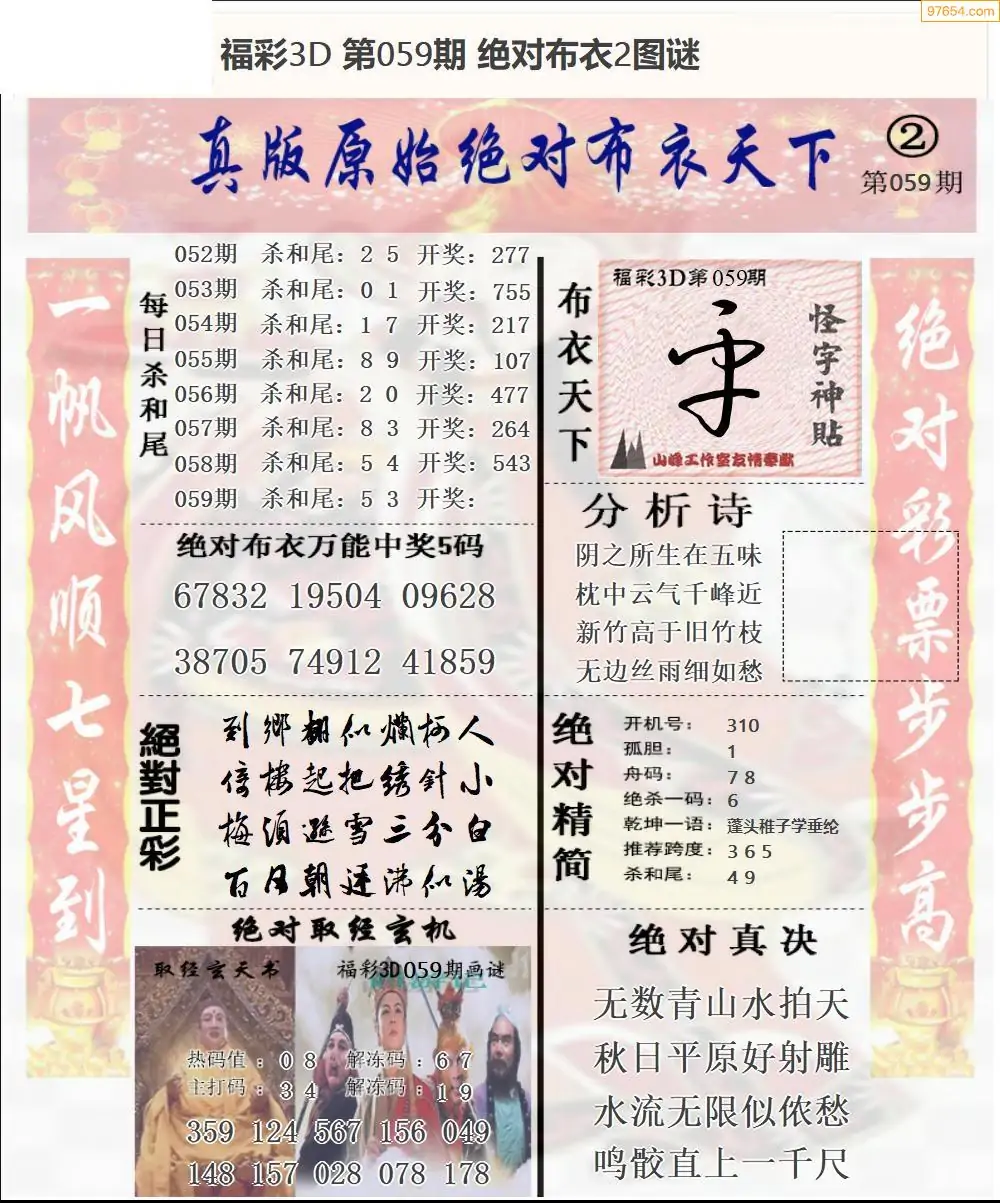 97654.com
福彩3D 第059期 绝对布衣2图谜
真版原始绝对布衣天下
②
第059期
一帆风顺七星到
每日杀和尾
052期 杀和尾：2 5 开奖：277
053期 杀和尾：0 1 开奖：755
054期 杀和尾：1 7 开奖：217
055期 杀和尾：8 9 开奖：107
056期 杀和尾：2 0 开奖：477
057期 杀和尾：8 3 开奖：264
058期 杀和尾：5 4 开奖：543
059期 杀和尾：5 3 开奖：
绝对布衣万能中奖5码
67832 19504 09628
38705 74912 41859
絕對正彩
到鄉翻似爛柯人
倚樓起把绣針小
梅須遜雪三分白
百月朝廷沸似湯
绝对取经玄机
取经玄天书
福彩3D059期画谜
热码值：0 8 解冻码：6 7
主打码：3 4 解冻码：1 9
359 124 567 156 049
148 157 028 078 178
布衣天下
福彩3D第059期
怪字神貼
山峰工作室友情奉献
分析诗
阴之所生在五味
枕中云气千峰近
新竹高于旧竹枝
无边丝雨细如愁
绝对精简
开机号：310
孤胆：1
舟码：7 8
绝杀一码：6
乾坤一语：蓬头稚子学垂纶
推荐跨度：3 6 5
杀和尾：4 9
绝对真决
无数青山水拍天
秋日平原好射雕
水流无限似侬愁
鸣骹直上一千尺
绝对彩票步步高